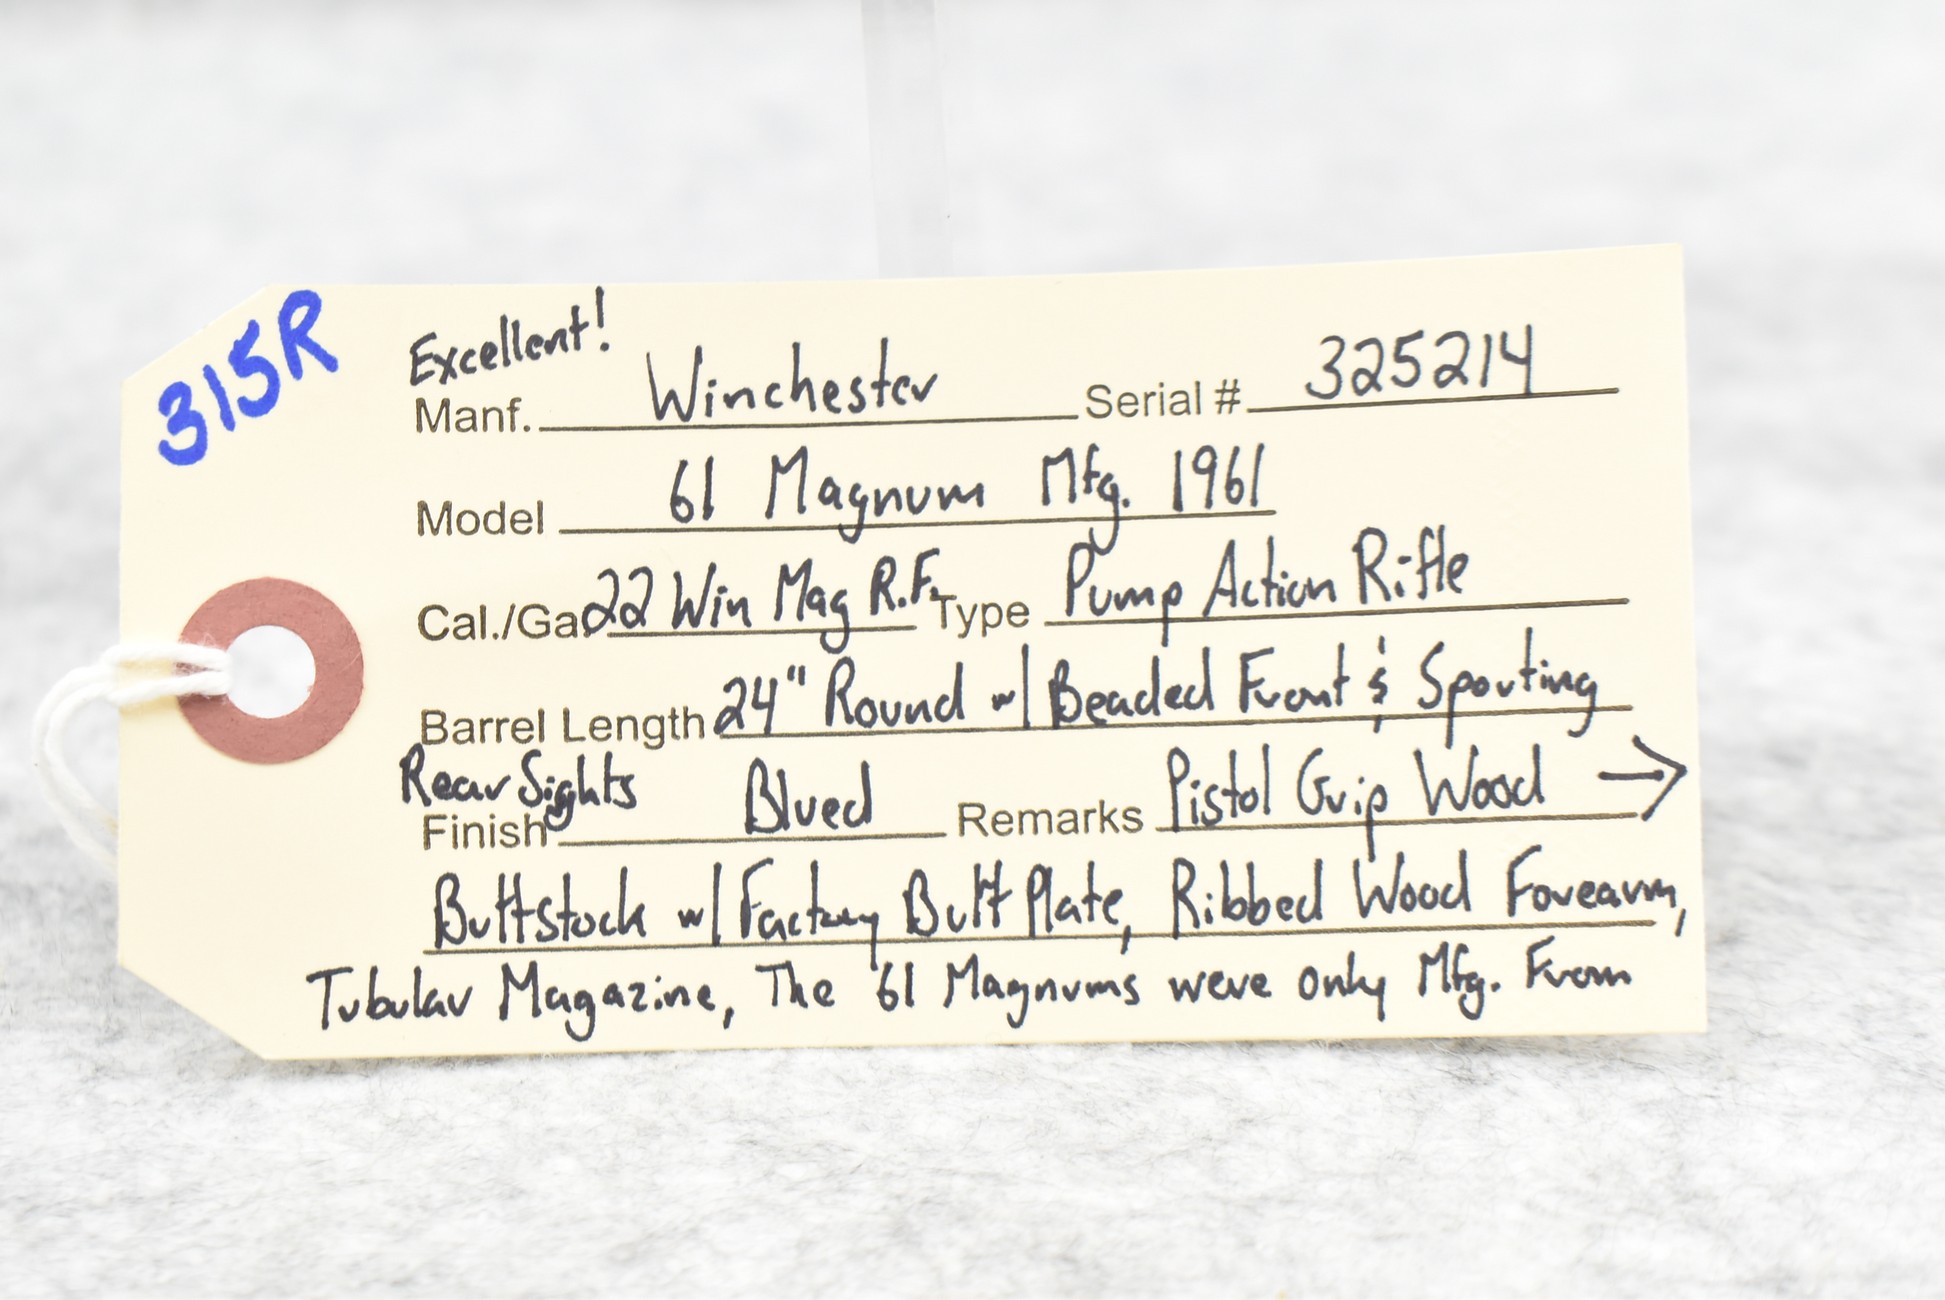 315R
Excellent!
Manf. Winchester Serial # 325214
Model 61 Magnum Mfg. 1961
Cal./Ga. 22 Win Mag R.F. Type Pump Action Rifle
Barrel Length 24" Round w/ Beaded Front & Sporting
Rear Sights
Finish Blued Remarks Pistol Grip Wood →
Buttstock w/ Factory Butt Plate, Ribbed Wood Forearm,
Tubular Magazine, The '61 Magnums were only Mfg. From